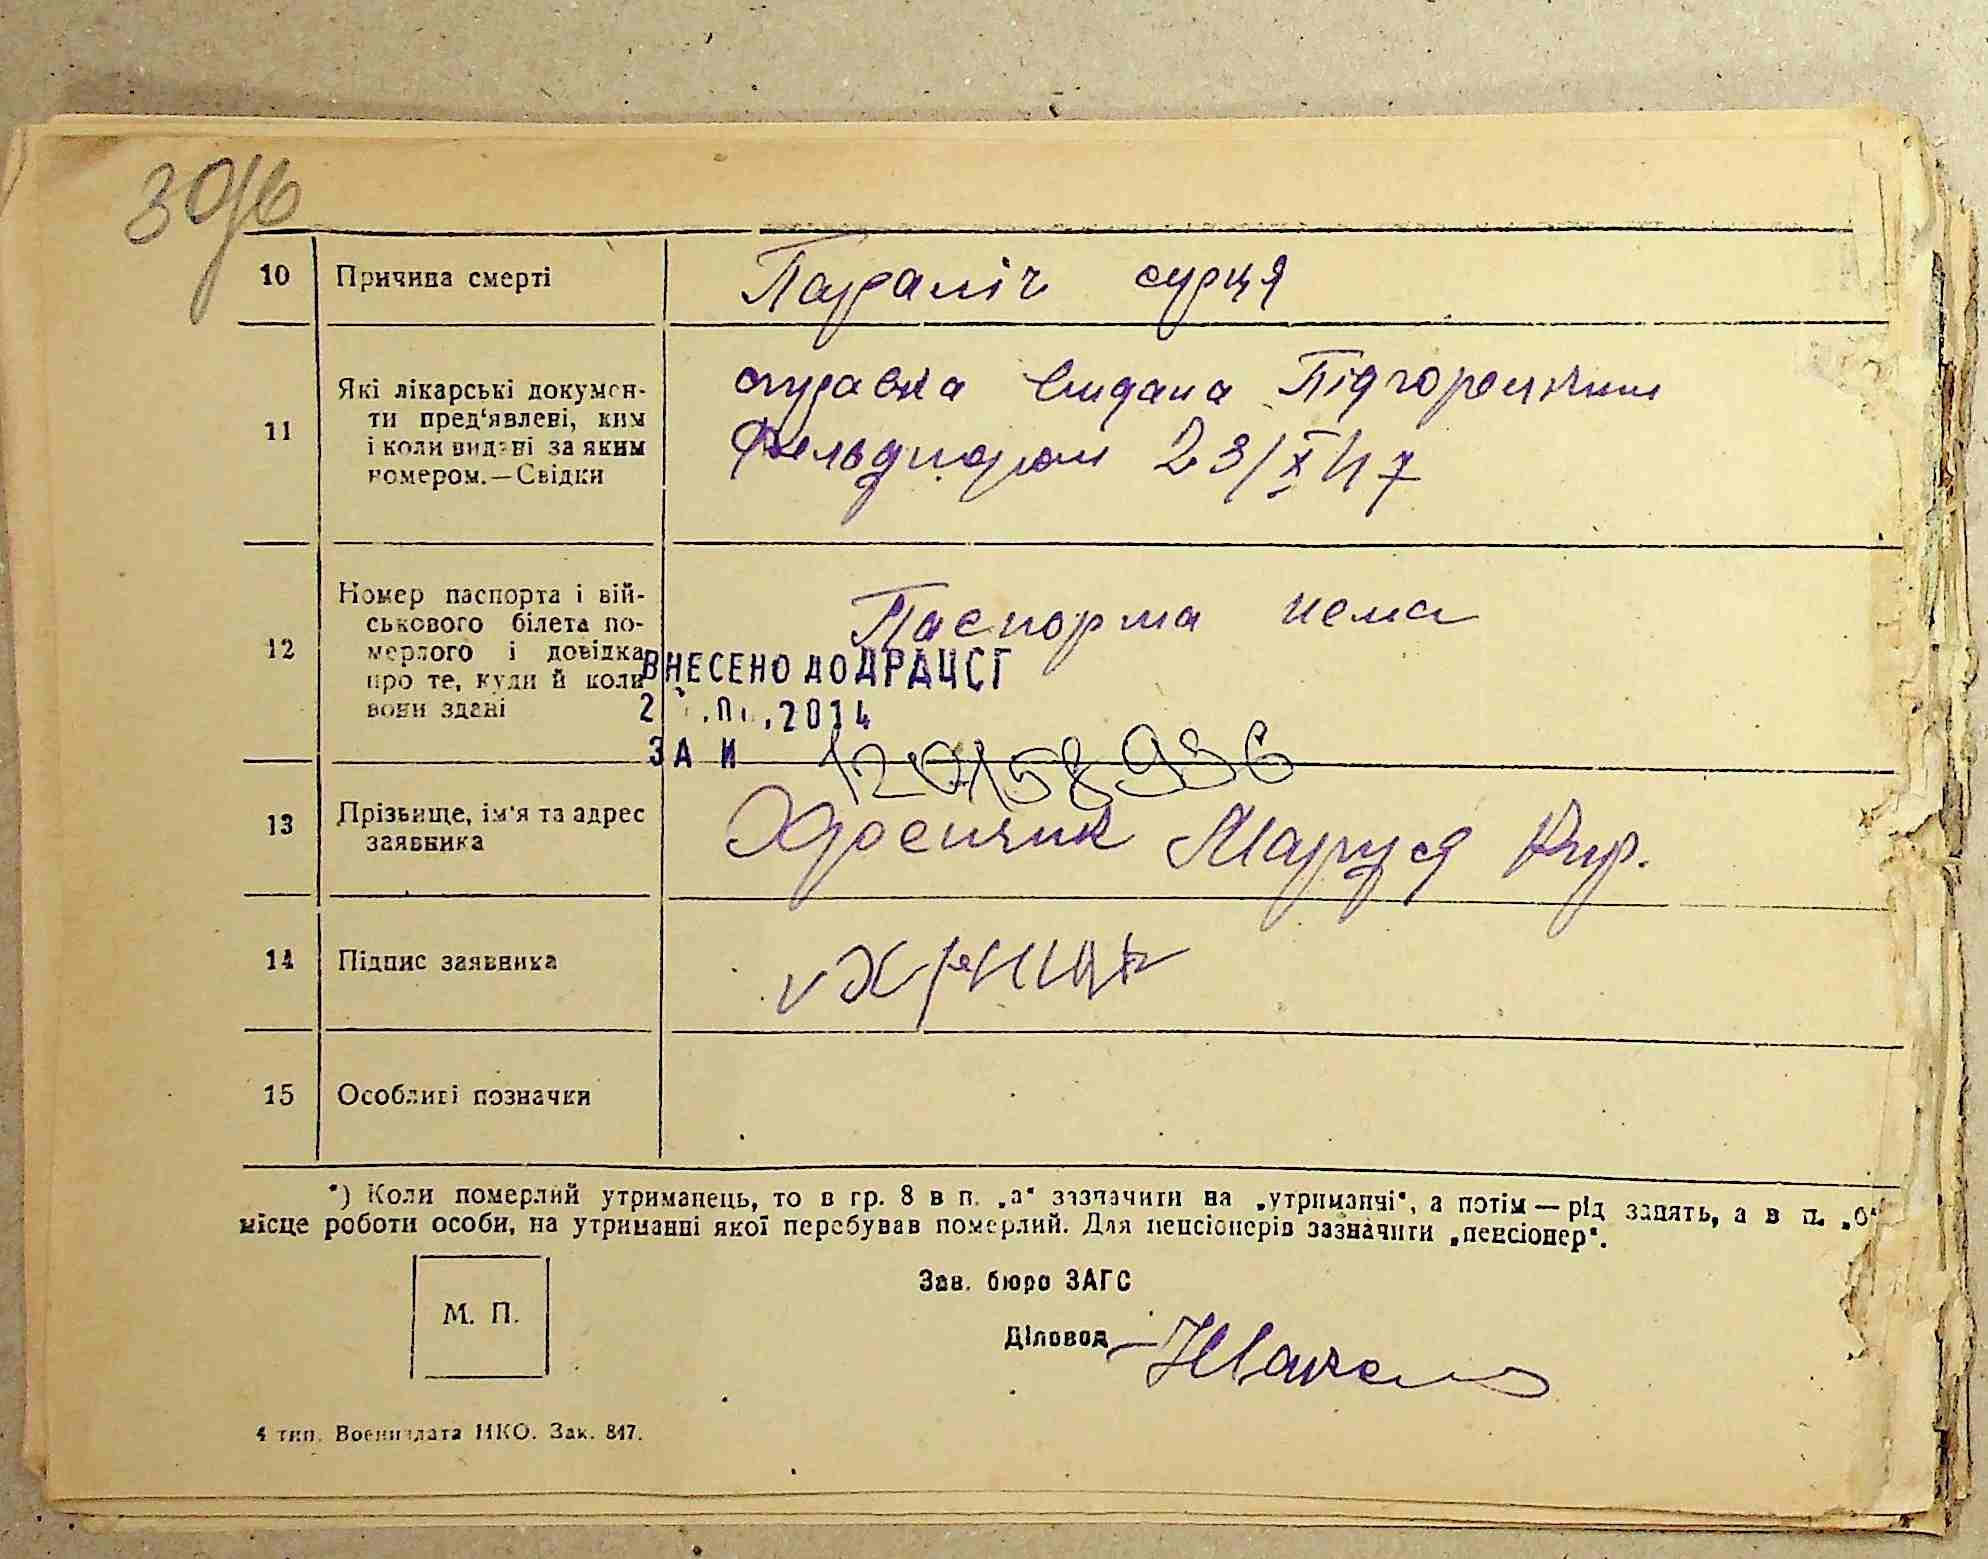 30
10 Причина смерті Параліч серця
11 Які лікарські докумен-
ти пред'явлені, ким
і коли видані за яким
номером.—Свідки
справка видана Підгороднім
Фельдшером 23/X 47
12 Номер паспорта і вій-
ськового білета по-
мерлого і довідка
про те, куди й коли
вони здані
Паспорта нема
ВНЕСЕНО ДО ДРАЦСГ
2 2014
ЗА И
13 Прізвище, ім'я та адрес
заявника
Маруся Кир.
14 Підпис заявника
15 Особливі позначки
*) Коли померлий утриманець, то в гр. 8 в п. „а" зазначити на „утриманчі", а потім — рід занять, а в п. „б"
місце роботи особи, на утриманні якої перебував померлий. Для пенсіонерів зазначити „пенсіонер".
Зав. бюро ЗАГС
М. П.
Діловод
4 тип. Воениздата НКО. Зак. 847.